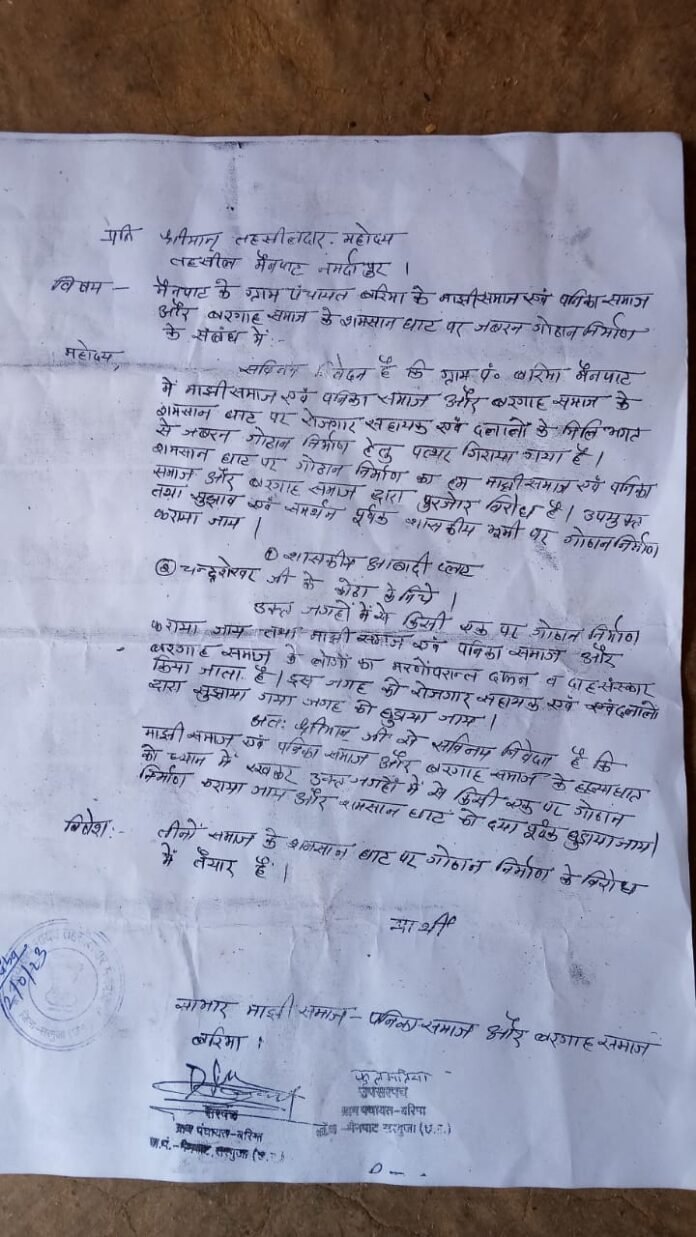 प्रति श्रीमान् तहसीलदार महोदय
तहसील मैनपाट नर्मदापुर ।
विषय - मैनपाट के ग्राम पंचायत बरिमा के माझी समाज एवं पनिका समाज
और बरगाह समाज के शमसान घाट पर जबरन गोठान निर्माण
के संबंध में :-
महोदय,
सविनय निवेदन है कि ग्राम पं० बरिमा मैनपाट
में माझी समाज एवं पनिका समाज और बरगाह समाज के
शमसान घाट पर रोजगार सहायक एवं दलालों के मिलि भगट
से जबरन गोठान निर्माण हेतु पत्थर गिराया गया है।
शमसान घाट पर गोठान निर्माण का हम माझी समाज एवं पनिका
समाज और बरगाह समाज द्वारा पुरजोर विरोध है। उपयुक्त
तथा सुझाव एवं समर्थन पूर्वक शासकीय भूमी पर गोठान निर्माण
कराया जाय ।
① शासकीय आबादी प्लाट
② चन्द्रशेखर जी के कोठा के निचे ।
उक्त जगहों में से किसी एक पर गोठान निर्माण
कराया जाय तथा माझी समाज एवं पनिका समाज और
बरगाह समाज के लोगों का मरणोपरान्त दफन व दाह संस्कार
किया जाता है। इस जगह को रोजगार सहायक एवं दलालो
द्वारा सुझाया गया जगह को छुड़ाया जाय।
अतः श्रीमान जी से सविनय निवेदन है कि
माझी समाज एवं पनिका समाज और बरगाह समाज के
को ध्यान में रखकर उक्त जगहों में से किसी एक पर गोठान
निर्माण कराया जाय और शमसान घाट को दया पूर्वक छुड़ाया जाय।
विशेष:- तीनों समाज के शमसान घाट पर गोठान निर्माण के विरोध
में तैयार है।
प्रार्थी
साभार माझी समाज - पनिका समाज और बरगाह समाज
बरिमा ।
फुलमतिया
सरपंच
उपसरपंच
ग्राम पंचायत-बरिमा
ग्राम पंचायत-बरिमा
ज.पं.-मैनपाट सरगुजा (छ.ग.)
मैनपाट सरगुजा (छ.ग.)